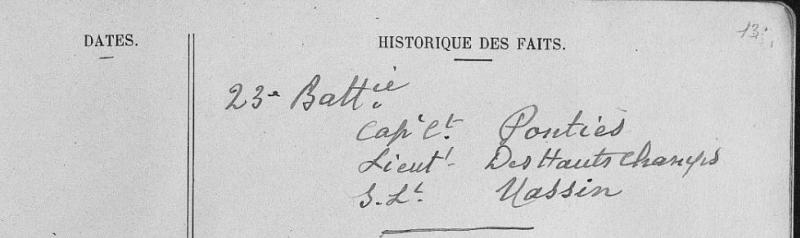 13
DATES. HISTORIQUE DES FAITS.
23e Battie
Cap. Ct. Pontiès
Lieutt. DesHautschamps
S.Lt. Massin